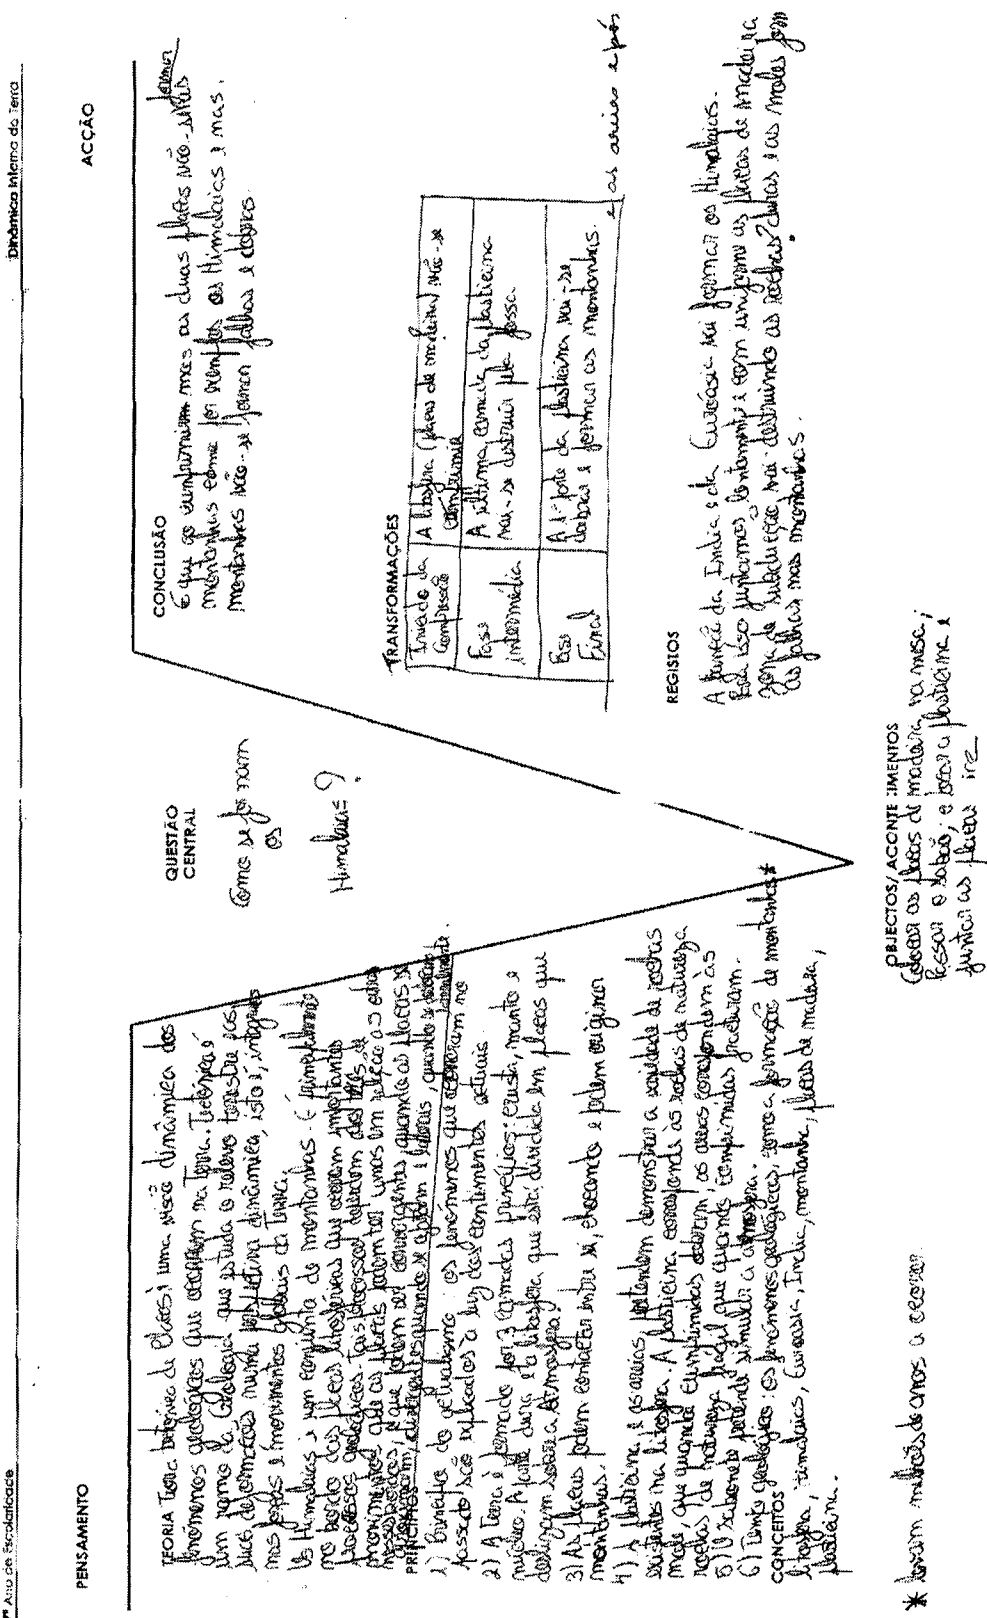 7º Ano de Escolaridade
Dinâmica Interna da Terra
PENSAMENTO
ACÇÃO
TEORIA Teoria tectónica de placas; uma visão dinâmica dos
fenómenos geológicos que ocorrem na terra. Tectónica é
um ramo da Geologia que estuda o relevo terrestre e as
suas deformações numa perspectiva dinâmica, isto é, integradas
nas forças e movimentos globais da Terra.
Os Himalaias é um conjunto de montanhas. É principalmente
no bordo das placas litosféricas que ocorrem importantes
processos geológicos. Tais processos dependem dos tipos de
movimentos que as placas podem ter umas em relação às outras
nesses bordos, e que podem ser convergentes, quando as placas se
aproximam, divergentes quando se afastam e laterais, quando se deslocam lateralmente.
PRINCÍPIOS
1) Princípio do actualismo: os fenómenos que ocorreram no
passado são explicados à luz dos acontecimentos actuais.
2) A Terra é formada por 3 camadas principais: crusta, manto e
núcleo. A parte dura é a litosfera, que está dividida em placas que
deslizam sobre a Atmosfera.
3) As placas podem contactar entre si, chocando e podem originar
montanhas.
4) A plasticina e as areias pretendem demonstrar a variedade de rochas
existentes na litosfera. A plasticina corresponde às rochas de natureza
mole que quando comprimidas dobram, as areias correspondem às
rochas de natureza frágil que quando comprimidas fracturam.
5) O sabonete pretende simular a atmosfera.
6) Tempo geológico: os fenómenos geológicos, como a formação de montanhas *
CONCEITOS
litosfera, himalaias, Euroasia, India, montanha, placas de madeira,
plasticina.
* levam milhões de anos a ocorrer
QUESTÃO
CENTRAL
Como se formam
os
Himalaias?
OBJECTOS/ACONTECIMENTOS
Colocar as placas de madeira, na mesa;
passar o sabão; e colocar a plasticina e
juntar as placas
e as areias e após
CONCLUSÃO
É que ao comprimirmos as duas placas vão-se formar
montanhas como por exemplo os Himalaias e nas
montanhas vão-se formar falhas e dobras.
TRANSFORMAÇÕES
Inicio da Compressão
A litosfera (placas de madeira) vai-se
comprimir
Fase intermédia
A última camada da plasticina
vai-se destruir pela fossa.
Fase Final
A 1ª parte da plasticina vai-se
dobrar e formar as montanhas.
REGISTOS
A junção da India e da Euroásia vai formar os Himalaias.
Para isso juntamos lentamente e com uniforme as placas de madeira
zona de subducção, vai destruindo as rochas? duras e as moles formam
as falhas nas montanhas.